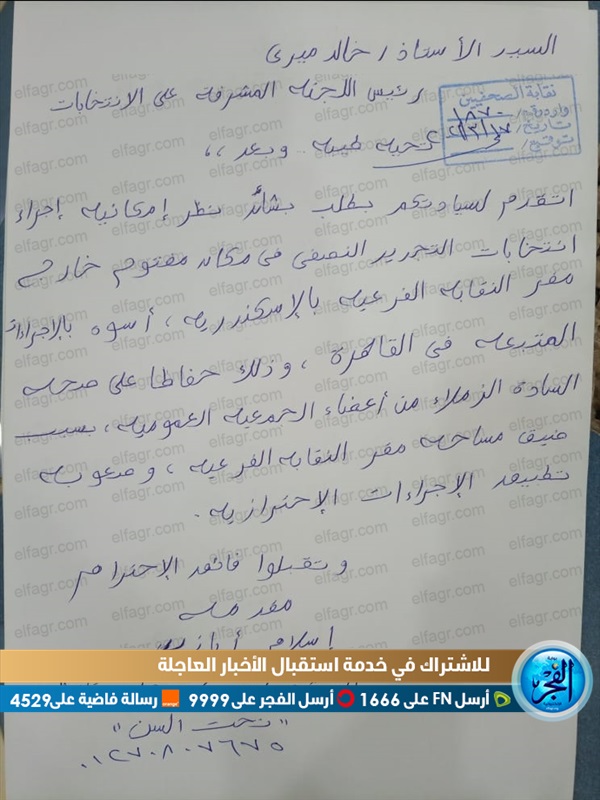 السيد الأستاذ / خالد ميرى
رئيس اللجنه المشرفه على الانتخابات
نقابة الصحفيين
وارد رقم / ١٨٧٠
تاريخ /
توقيع /
تحيه طيبه وبعد ،،
اتقدم لسيادتكم بطلب بشأن نظر إمكانيه إجراء
انتخابات التجديد النصفى فى مكان مفتوح خارج
مقر النقابه الفرعيه بالإسكندريه ، أسوه بالإجراءات
المتبعه فى القاهرة ، وذلك حفاظا على صحه
الساده الزملاء من أعضاء الجمعيه العموميه ، بسبب
ضيق مساحه مقر النقابه الفرعيه ، وصعوبه
تطبيق الإجراءات الإحترازيه .
وتقبلوا فائق الإحترام
مقدمه
إسلام
للاشتراك في خدمة استقبال الأخبار العاجلة
أرسل FN على 1666 أرسل الفجر على 9999 رسالة فاضية على 4529
الفجر
"تحت السن"
٠١٢٧٠٨٠٧٦٧٥
elfagr.com